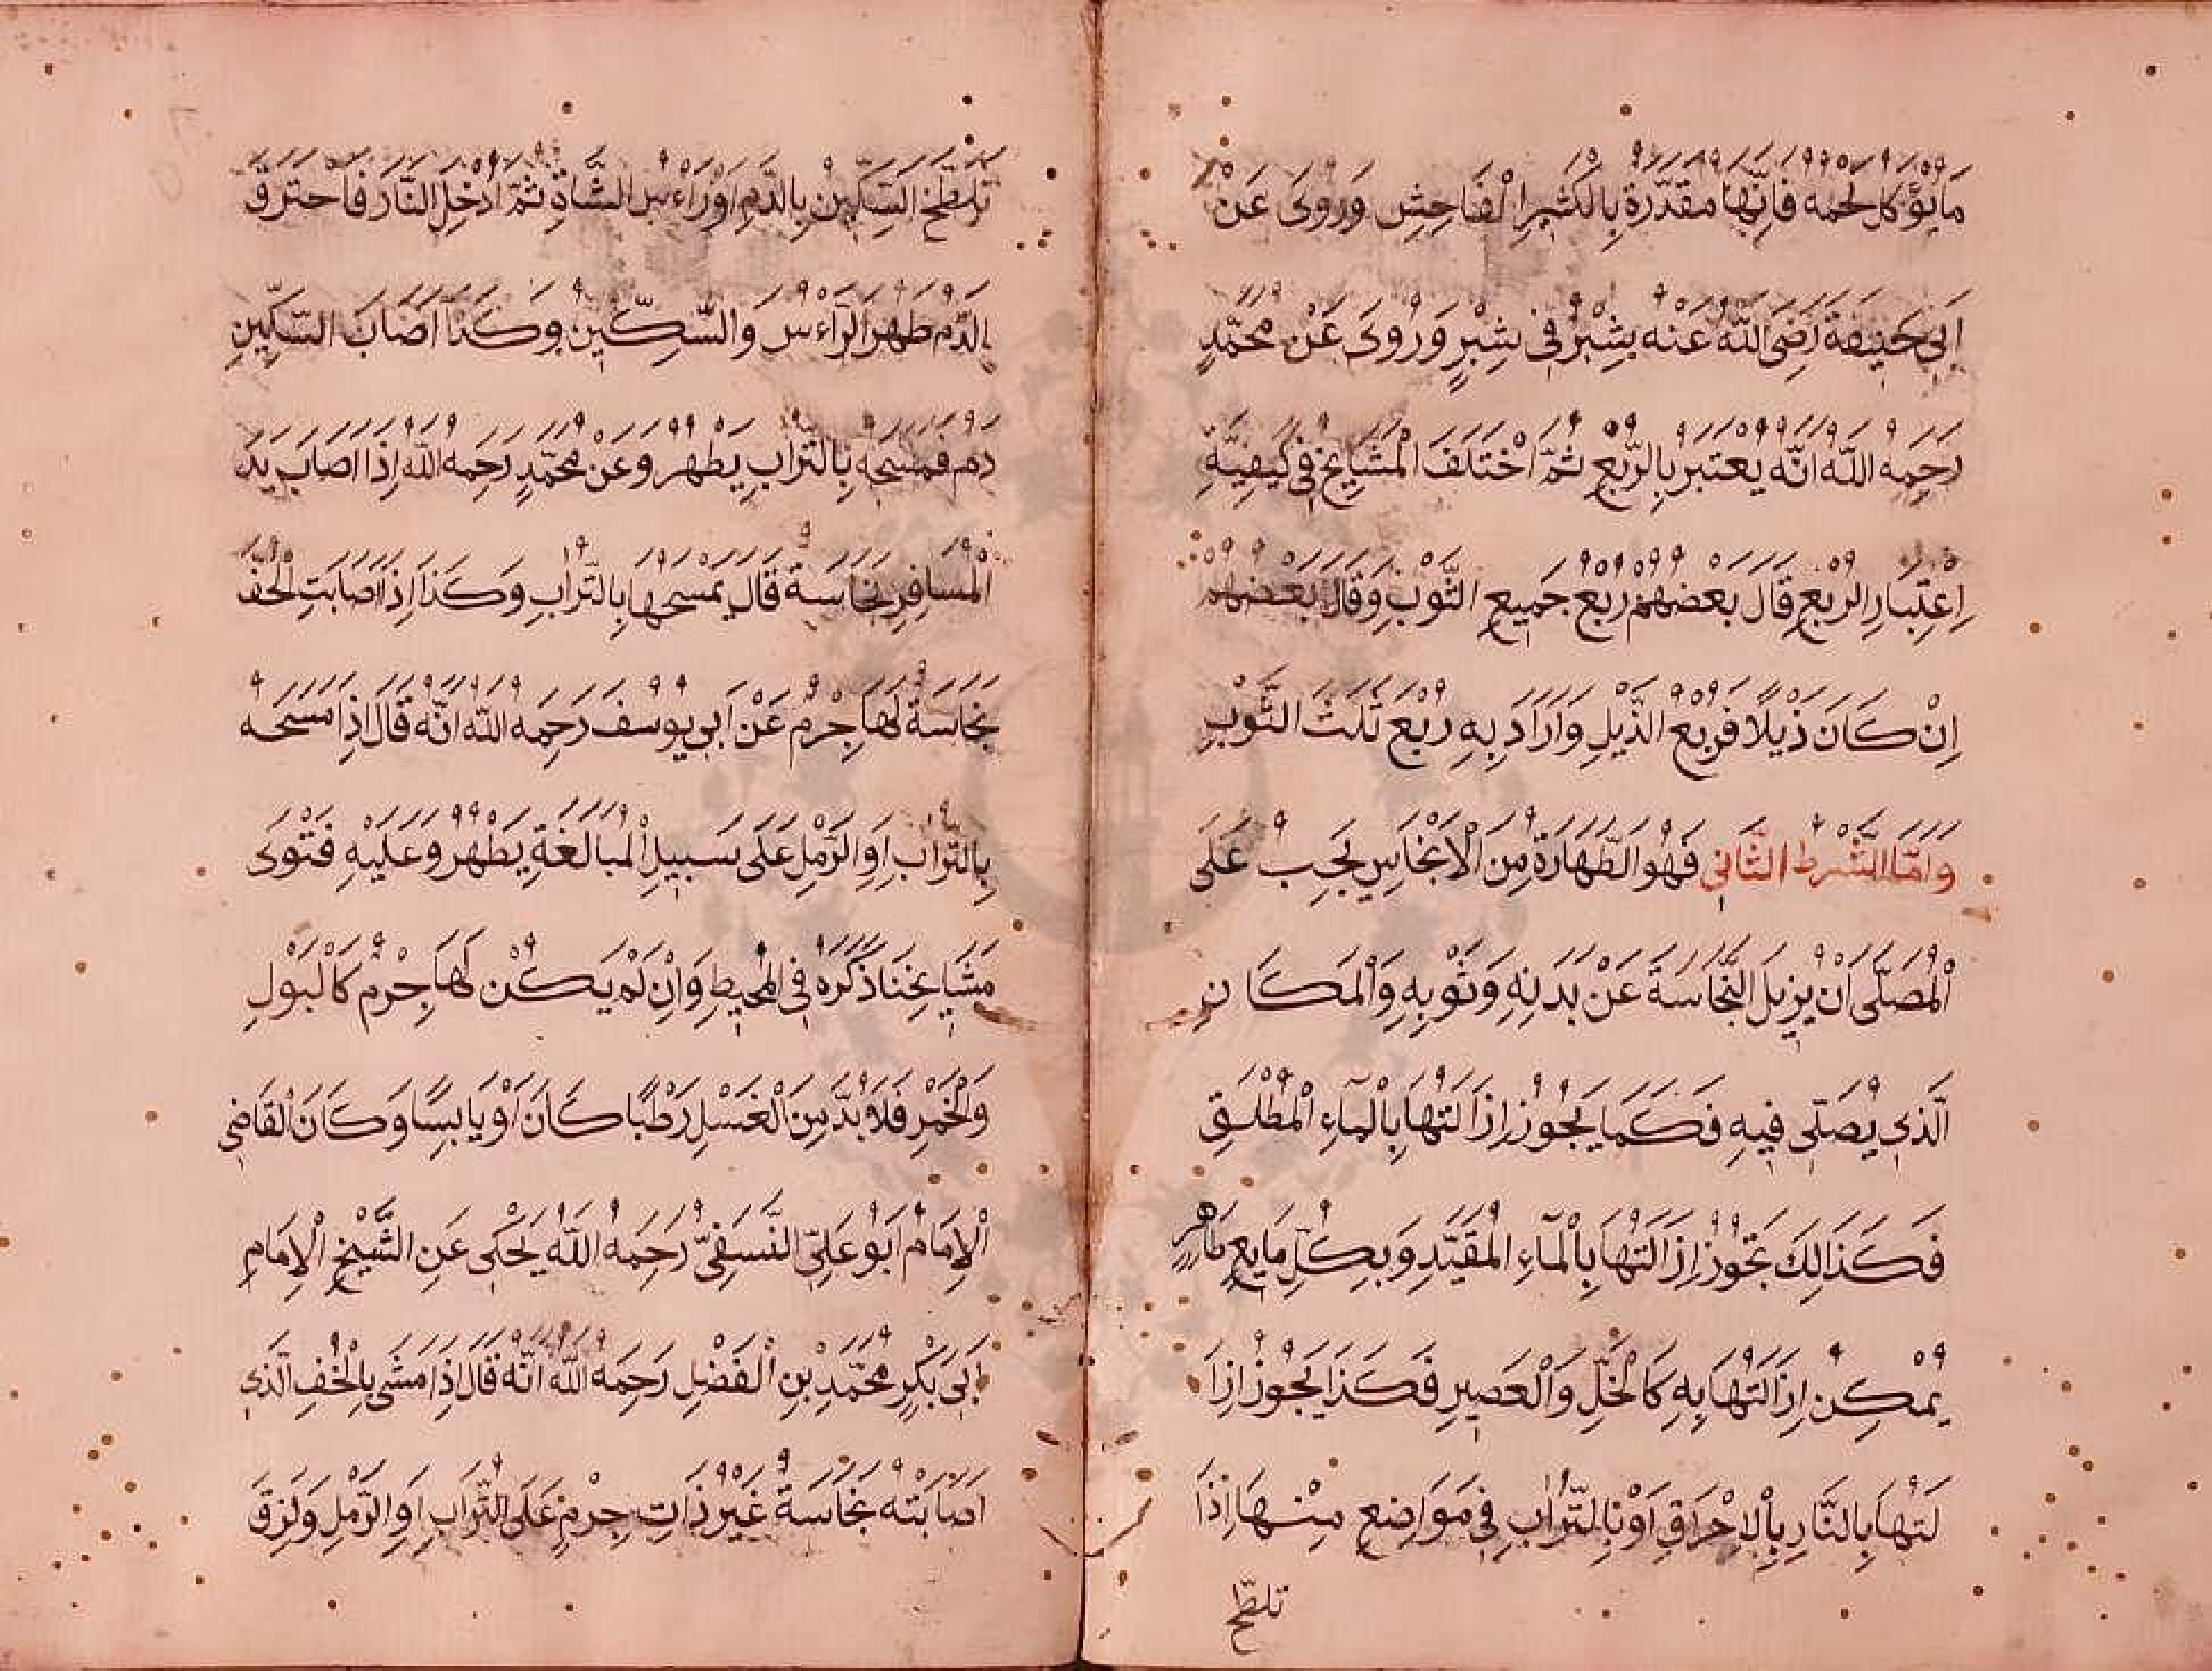 مَا يُؤْكَلُ لَحْمُهُ فَاِنَّهَا مُقَدَّرَةٌ بِالْكَثِيرِ الْفَاحِشِ وَرُوِىَ عَنْ
اَبِى حَنِيفَةَ رَضِىَ اللّٰهُ عَنْهُ بِشِبْرٌ فِى شِبْرٍ وَرُوِىَ عَنْ مُحَمَّدٍ
رَحِمَهُ اللّٰهُ اَنَّهُ يُعْتَبَرُ بِالرُّبْعِ ثُمَّ اخْتَلَفَ الْمَشَايِخُ فِى كَيْفِيَّةِ
اِعْتِبَارِ الرُّبْعِ قَالَ بَعْضُهُمْ رُبْعُ جَمِيعِ الثَّوْبِ وَقَالَ بَعْضُهُمْ
اِنْ كَانَ ذَيْلًا فَرُبْعُ الذَّيْلِ وَاَرَادَ بِهِ رُبْعَ ثُلُثَ الثَّوْبِ
وَاَمَّا الشَّرْطُ الثَّانِى فَهُوَ الطَّهَارَةُ مِنَ الْاَنْجَاسِ يَجِبُ عَلَى
الْمُصَلِّى اَنْ يُزِيلَ النَّجَاسَةَ عَنْ بَدَنِهِ وَثَوْبِهِ وَالْمَكَانِ
الَّذِى يُصَلِّى فِيهِ فَكَمَا يَجُوزُ اِزَالَتُهَا بِالْمَاءِ الْمُطْلَقِ
فَكَذَالِكَ تَجُوزُ اِزَالَتُهَا بِالْمَاءِ الْمُقَيَّدِ وَبِكُلِّ مَايِعٍ طَاهِرٍ
يُمْكِنُ اِزَالَتُهَا بِهِ كَالْخَلِّ وَالْعَصِيرِ فَكَذَا يَجُوزُ اِزَا
لَتُهَا بِالنَّارِ بِالْاِحْرَاقِ اَوْ بِالتُّرَابِ فِى مَوَاضِعَ مِنْهَا اِذَا
تلطّخ
تَلَطَّخَ السِّكِّينُ بِالدَّمِ اَوْ رَاءْسُ الشَّاةِ ثُمَّ اُدْخِلَ النَّارَ فَاحْتَرَقَ
الدَّمُ طَهُرَ الرَّاءْسُ وَالسِّكِّينُ وَكَذَا اَصَابَ السِّكِّينَ
دَمٌ فَمَسَحَهُ بِالتُّرَابِ يَطْهُرُ وَعَنْ مُحَمَّدٍ رَحِمَهُ اللّٰهُ اِذَا اَصَابَ يَدَ
الْمُسَافِرِ نَجَاسَةٌ قَالَ يَمْسَحُهَا بِالتُّرَابِ وَكَذَا اِذَا اَصَابَتِ الْخُفَّ
نَجَاسَةٌ لَهَا جِرْمٌ عَنْ اَبِى يُوسُفَ رَحِمَهُ اللّٰهُ اَنَّهُ قَالَ اِذَا مَسَحَهُ
بِالتُّرَابِ اَوِ الرَّمْلِ عَلَى سَبِيلِ الْمُبَالَغَةِ يَطْهُرُ وَعَلَيْهِ فَتْوَى
مَشَايِخِنَا ذَكَرَهُ فِى الْمُحِيطِ وَاِنْ لَمْ يَكُنْ لَهَا جِرْمٌ كَالْبَوْلِ
وَالْخَمْرِ فَلَا بُدَّ مِنَ الْغَسْلِ رَطْبًا كَانَ اَوْ يَابِسًا وَكَانَ الْقَاضِى
الْاِمَامُ اَبُو عَلِىٍّ النَّسَفِىُّ رَحِمَهُ اللّٰهُ يَحْكِى عَنِ الشَّيْخِ الْاِمَامِ
اَبِى بَكْرٍ مُحَمَّدِ بْنِ الْفَضْلِ رَحِمَهُ اللّٰهُ اَنَّهُ قَالَ اِذَا مَشَى بِالْخُفِّ الَّذِى
اَصَابَتْهُ نَجَاسَةٌ غَيْرُ ذَاتِ جِرْمٍ عَلَى التُّرَابِ اَوِ الرَّمْلِ وَلَزِقَ